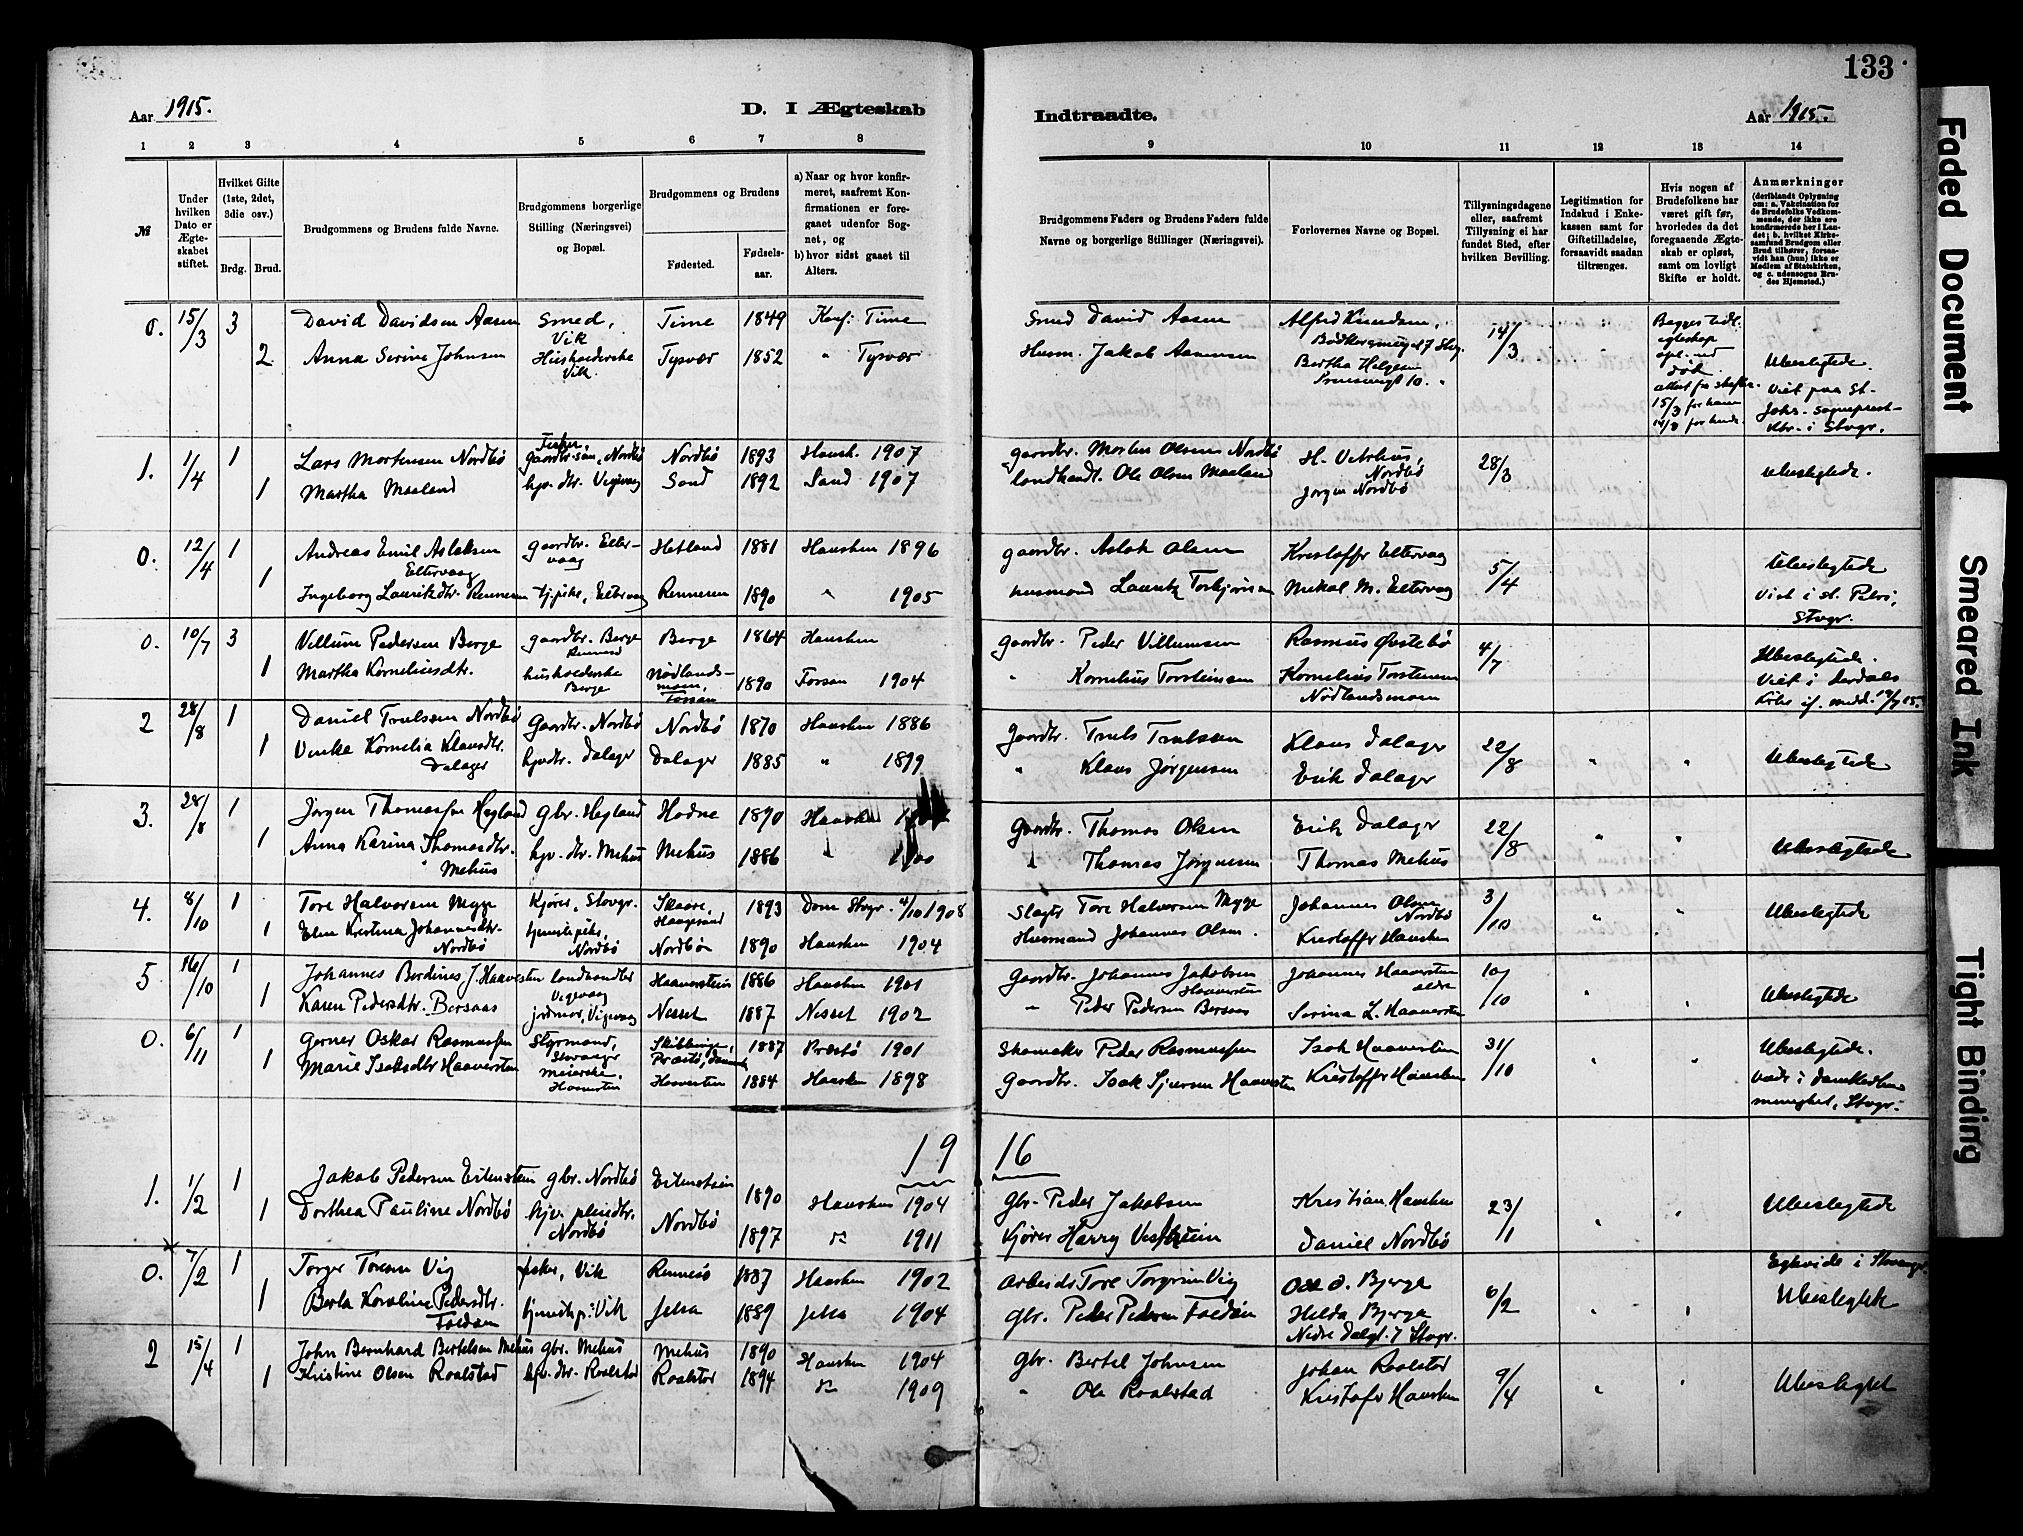 133
Aar 1915.
D. I Ægteskab
Indtraadte.
Aar 1915.
1 2 3 4 5 6 7 8
9 10 11 12 13 14
№
Under hvilken Dato er Ægteskabet stiftet.
Hvilket Gifte (1ste, 2det, 3die osv.)
Brdg. Brud.
Brudgommens og Brudens fulde Navne.
Brudgommens borgerlige Stilling (Næringsvei) og Bopæl.
Brudgommens og Brudens
Fødested.
Fødselsaar.
a) Naar og hvor konfirmeret, saafremt Konfirmationen er foregaaet udenfor Sognet, og
b) hvor sidst gaaet til Alters.
Brudgommens Faders og Brudens Faders fulde Navne og borgerlige Stillinger (Næringsvei).
Forlovernes Navne og Bopæl.
Tillysningsdagene eller, saafremt Tillysning ei har fundet Sted, efter hvilken Bevilling.
Legitimation for Indskud i Enkekassen samt for Giftetilladelse, forsaavidt saadan tiltrænges.
Hvis nogen af Brudefolkene har været gift før, hvorledes da det foregaaende Ægteskab er opløst, samt om lovligt Skifte er holdt.
Anmærkninger
(deriblandt Oplysning om: a. Vaksination for de Brudefolks Vedkommende, der ikke ere konfirmerede her i Landet; b. hvilket Kirkesamfund Brudgom eller Brud tilhører, forsaavidt han (hun) ikke er Medlem af Statskirken, og c. udensogns Brudes Hjemsted.)
0. 15/3 3 David Davidsen Aasen Smed, Vik Time 1849 Konf. Time Smed David Aasen Alfred Knudsen, 14/3
2 Anna Serine Johnsen Husholderske Vik Tysvær 1852 " Tysvær Husm. Jakob Aanensen Bertha Helgesen
Begges tidl. egteskap opl. ved død. 15/3 for ham 14/3 for hende.
Ubeslegtede Viet paa St. Joh.
1. 1/4 1 Lars Mortensen Nordbø Fisker, gaardbr. søn, Nordbø Nordbø 1893 Hausk. 1907 gaardbr. Morten Olsen Nordbø H. Vetrhus, Nordbø 28/3
1 Martha Maaland hjv. dtr. Vigevaag Sand 1892 Sand 1907 landhandl. Ole Olsen Maaland Jørgen Nordbø Ubeslegtede.
0. 12/4 1 Andreas Emil Aslaksen Eltervaag gaardbr. Eltervaag Hetland 1881 Hausken 1896 gaardbr. Aslak Olsen Kristoffer Eltervaag 5/4
1 Ingeborg Lauritzdtr. Rennesen tj.pike, Eltervaag Rennesen 1890 " 1905 husmand Lauritz Torbjørnsen Mikal M. Eltervaag
Ubeslegtede Viet i St. Petri, Stvgr.
0. 10/7 3 Villum Pedersen Berge gaardbr. Berge Berge 1864 Hausken gaardbr. Peder Villumsen Rasmus Østebø 4/7
1 Martha Korneliusdtr. husholderske Berge Nødlandsmoen, Forsan 1890 Forsan 1904 " Kornelius Torsteinsen Kornelius Torsteinsen Nødlandsmoen
Ubeslegtede. Viet i
2 28/8 1 Daniel Trulssen Nordbø Gaardbr. Nordbø Nordbø 1870 Hausken 1886 Gaardbr. Truls Trulssen Klaus Dalager 22/8 " "
1 Vinka Kornelia Klausdtr. Dalager hjvdtr. Dalager Dalager 1885 " 1899 " Klaus Jørgensen Erik Dalager Ubeslegtede
3. 28/8 1 Jørgen Thomassen Hegland gbr. Hegland Hodne 1890 Hausken Gaardbr. Thomas Olsen Erik Dalager 22/8 " "
1 Anna Karina Thomasdtr. Mehus hjv. dtr. Mehus Mehus 1886 " 1900 " Thomas Jørgensen Thomas Mehus Ubeslegtede
4. 8/10 1 Tore Halvorsen Mygge Kjører, Stvgr. Skaare, Haugesund 1893 Dom Stvgr. 4/10 1908 Slagter Tore Halvorsen Mygge Johannes Olsen Nordbø 3/10 " "
1 Elen Kristina Johannesdtr. Nordbø tjenestepike, Nordbø Nordbø 1890 Hausken 1904 Husmand Johannes Olsen. Kristoffer Hausken Ubeslegtede
5. 16/10 1 Johannes Berdines J. Haaversten landhandler Vigevaag Haaversteins 1886 Hausken 1901 Gaardbr. Johannes Jakobsen Haaversten Johannes Haaversten 10/10 " "
1 Karen Pedersdtr. Bersaas jordmor, Vigevaag Nesset 1887 Nesset 1902 " Peder Pedersen Bersaas Serina L. Haaversten Ubeslegtede
0. 6/11 1 Gerner Oskar Rasmussen Styrmand, Stavanger Skibbinge, Præstø, Danmark 1887 Præstø 1901 Skomaker Peder Rasmussen Isak Haaversten 31/10 " "
1 Marie Isaksdtr Haaversten meierske, Haaversten Haaversten 1884 Hausken 1898 Gaardbr. Isak Sjursen Haaversten Kristoffer Hausken
Ubeslegtede.
19 16
1. 1/2 1 Jakob Pedersen Eitenstein gbr. Nordbø Eitenstein 1890 Hausken 1904 Gbr. Peder Jakobsen Kristian Hausken 23/1 " "
1 Dorthea Pauline Nordbø hjv. pleiedtr. Nordbø Nordbø 1897 do 1911 Kjører Harry Vestheim Daniel Nordbø Ubeslegtede
0. 7/2 1 Torger Toresen Vig fisker, Vik Rennesø 1887 Hausken 1902 Arbeids Tore Torgersen Vig Ole O. Bjerga 6/2 " "
1 Berta Karoline Pedersdtr. Foldøen tjenestep. Vik Jelsa 1889 Jelsa 1904 gbr. Peder Pedersen Foldøen Helda Bjerga Nedre Dalgt. 7 Stvgr.
Egtevide i Stavanger. Ubeslegtede
2 15/4 1 John Bernhard Bertelsen Mehus gbr. Mehus Mehus 1890 Hausken 1904 Gbr. Bertel Johnsen Johan Roalstad 9/4 " "
1 Kristine Olsen Roalstad hjv. dtr. Roalstad Roalstad 1894 do 1909 " Ole Roalstad Kristofer Hausken Ubeslegtet
Faded Document
Smeared Ink
Tight Binding